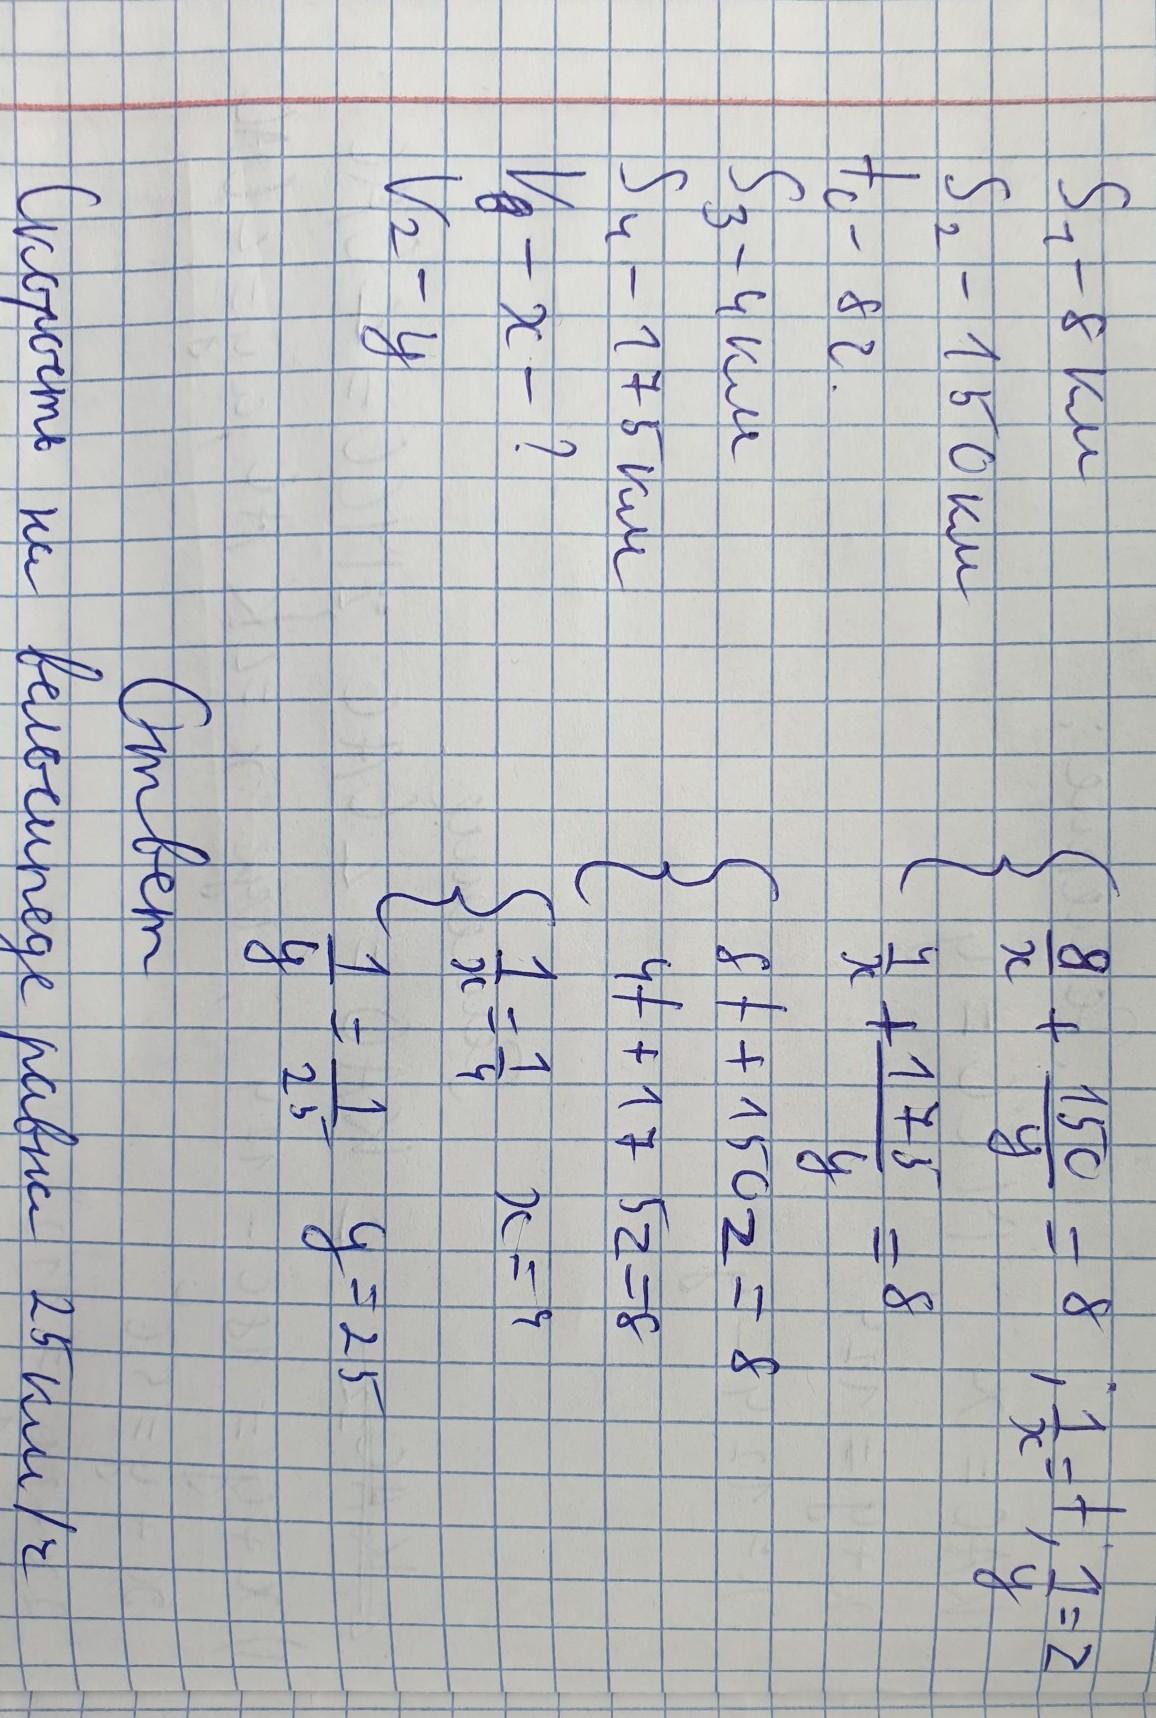 S₁ - 8 км
S₂ - 150 км
t₀ - 8 ч.
S₃ - 4 км
S₄ - 175 км
V - x - ?
V₂ - y
{ 8/x + 150/y = 8 , 1/x = t , 1/y = z
4/x + 175/y = 8
{ 8t + 150z = 8
4t + 175z = 8
{ 1/x = 1/4 x = 4
1/y = 1/25 y = 25
Ответ
Скорость на велосипеде равна 25 км/ч